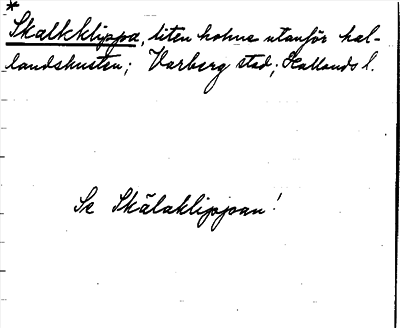 *
Skalkklippa, liten holme utanför hal-
landskusten; Varberg stad; Hallands l.
Se Skälaklippan!